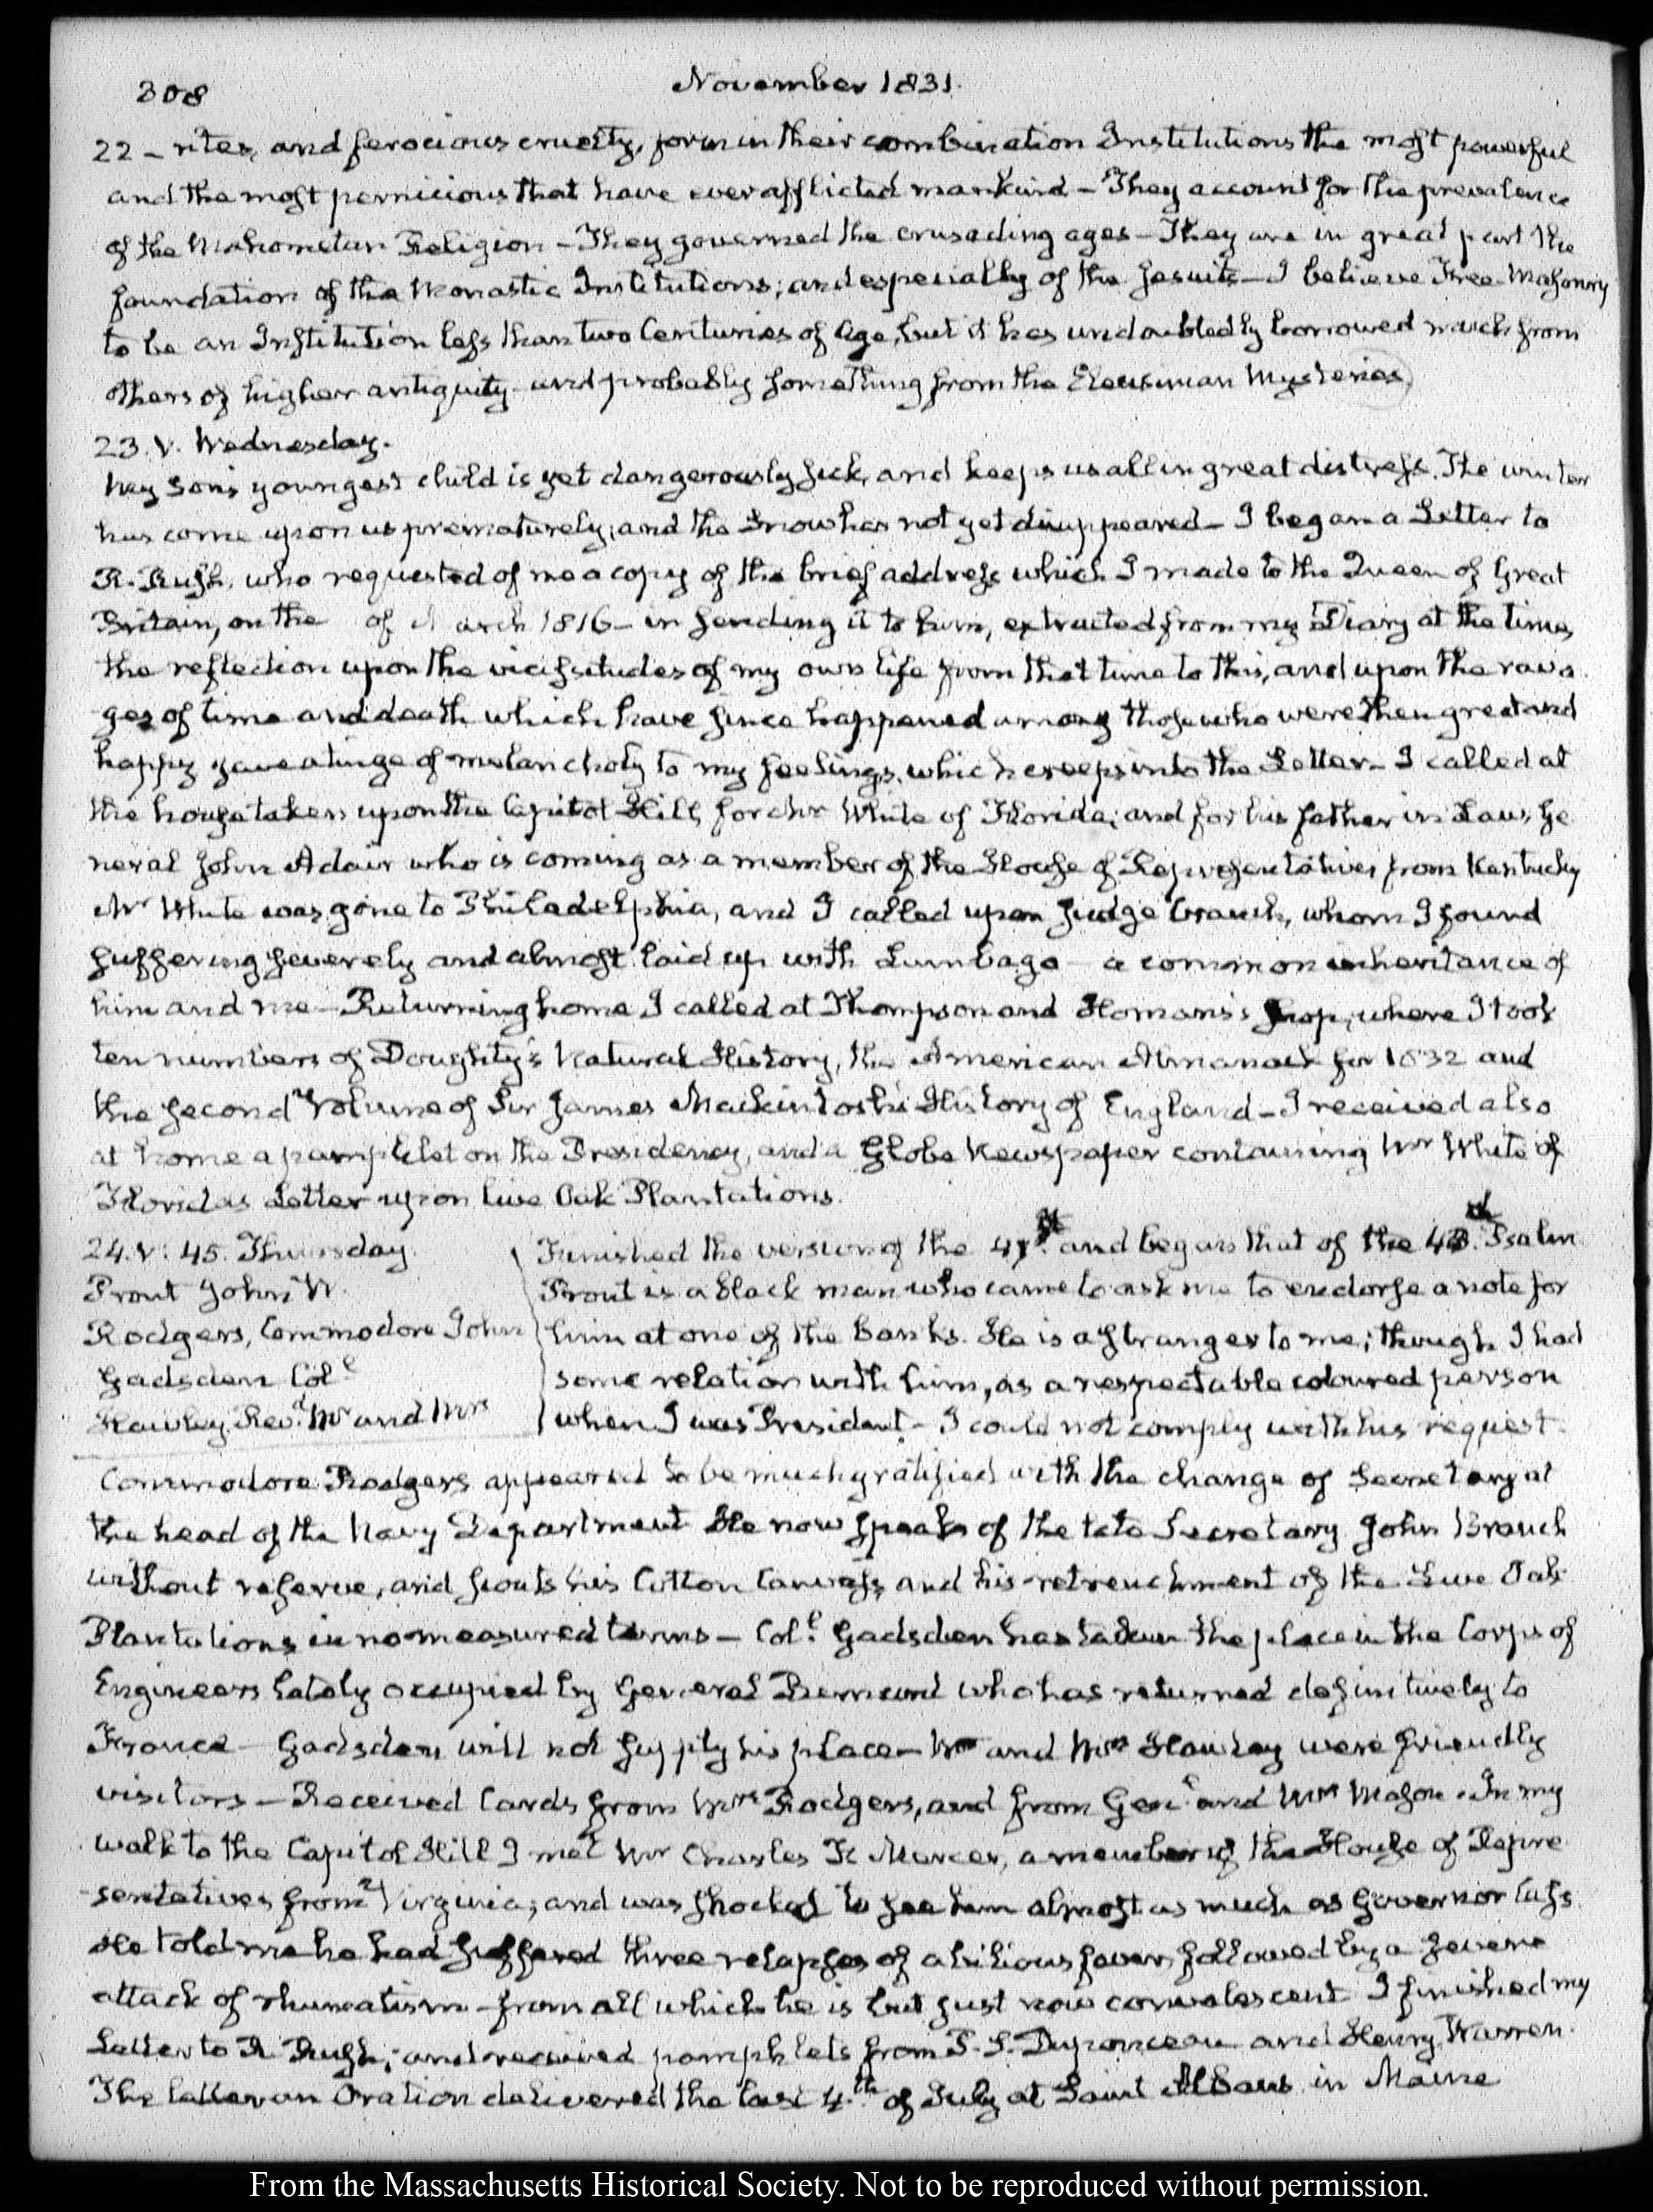 308
November 1831.
22 – rites, and ferocious cruelty, form in their combination Institutions the most powerful
and the most pernicious that have ever afflicted mankind – They account for the prevalence
of the Mahometan Religion – They governed the crusading ages – They are in great part the
foundation of the Monastic Institutions; and especially of the Jesuits – I believe Free-Masonry
to be an Institution less than two Centuries of Age, but it has undoubtedly borrowed much from
others of higher antiquity and probably something from the Eleusinian Mysteries
23. V. Wednesday.
My Son's youngest child is yet dangerously sick, and keeps us all in great distress. The winter
has come upon us prematurely, and the Snow has not yet disappeared – I began a Letter to
R. Rush, who requested of me a copy of the brief address which I made to the Queen of Great
Britain, on the of March 1816 – in sending it to him, extracted from my Diary at the time,
the reflection upon the vicissitudes of my own life from that time to this, and upon the rava
ges of time and death which have since happened among those who were then great and
happy gave a tinge of melancholy to my feelings, which creeps into the Letter – I called at
the house taken upon the Capitol Hill, for Mr White of Florida; and for his father in Law, Ge
neral John Adair who is coming as a member of the House of Representatives from Kentucky
Mr White was gone to Philadelphia, and I called upon Judge Cranch, whom I found
suffering severely and almost laid up with Lumbago – a common inheritance of
him and me – Returning home I called at Thompson and Homans's shop, where I took
ten numbers of Doughty's Natural History, the American Almanack for 1832 and
the second Volume of Sir James Mackintosh's History of England – I received also
at home a pamphlet on the Presidency, and a Globe Newspaper containing Mr White of
Florida's Letter upon live Oak Plantations.
24. V: 45. Thursday.
Prout John W.
Rodgers, Commodore John
Gadsden Coll
Hawley, Revd Mr and Mrs
Finished the version of the 47th and began that of the 48th Psalm
Prout is a black man who came to ask me to endorse a note for
him at one of the Banks. He is a stranger to me; though I had
some relation with him, as a respectable coloured person
when I was President – I could not comply with his request.
Commodore Rodgers appeared to be much gratified with the change of Secretary at
the head of the Navy Department He now speaks of the late Secretary John Branch
without reserve, and scouts his Cotton Canvass, and his retrenchment of the Live Oak
Plantations in no measured terms – Coll Gadsden has taken the place in the Corps of
Engineers lately occupied by General Bernard who has returned definitively to
France – Gadsden will not supply his place – Mr and Mrs Hawley were friendly
visitors – Received Cards from Mrs Rodgers, and from Genl and Mrs Mason. In my
walk to the Capitol Hill I met Mr Charles F. Mercer, a member of the House of Repre
sentatives from Virginia; and was shocked to see him almost as much as Governor Cass.
He told me he had suffered three relapses of a bilious fever, followed by a severe
attack of rheumatism – from all which he is but just now convalescent I finished my
Letter to R. Rush; and received pamphlets from P. S. Duponceau and Henry Warren.
The latter an Oration delivered the last 4th of July at Saint Albans in Maine
From the Massachusetts Historical Society. Not to be reproduced without permission.